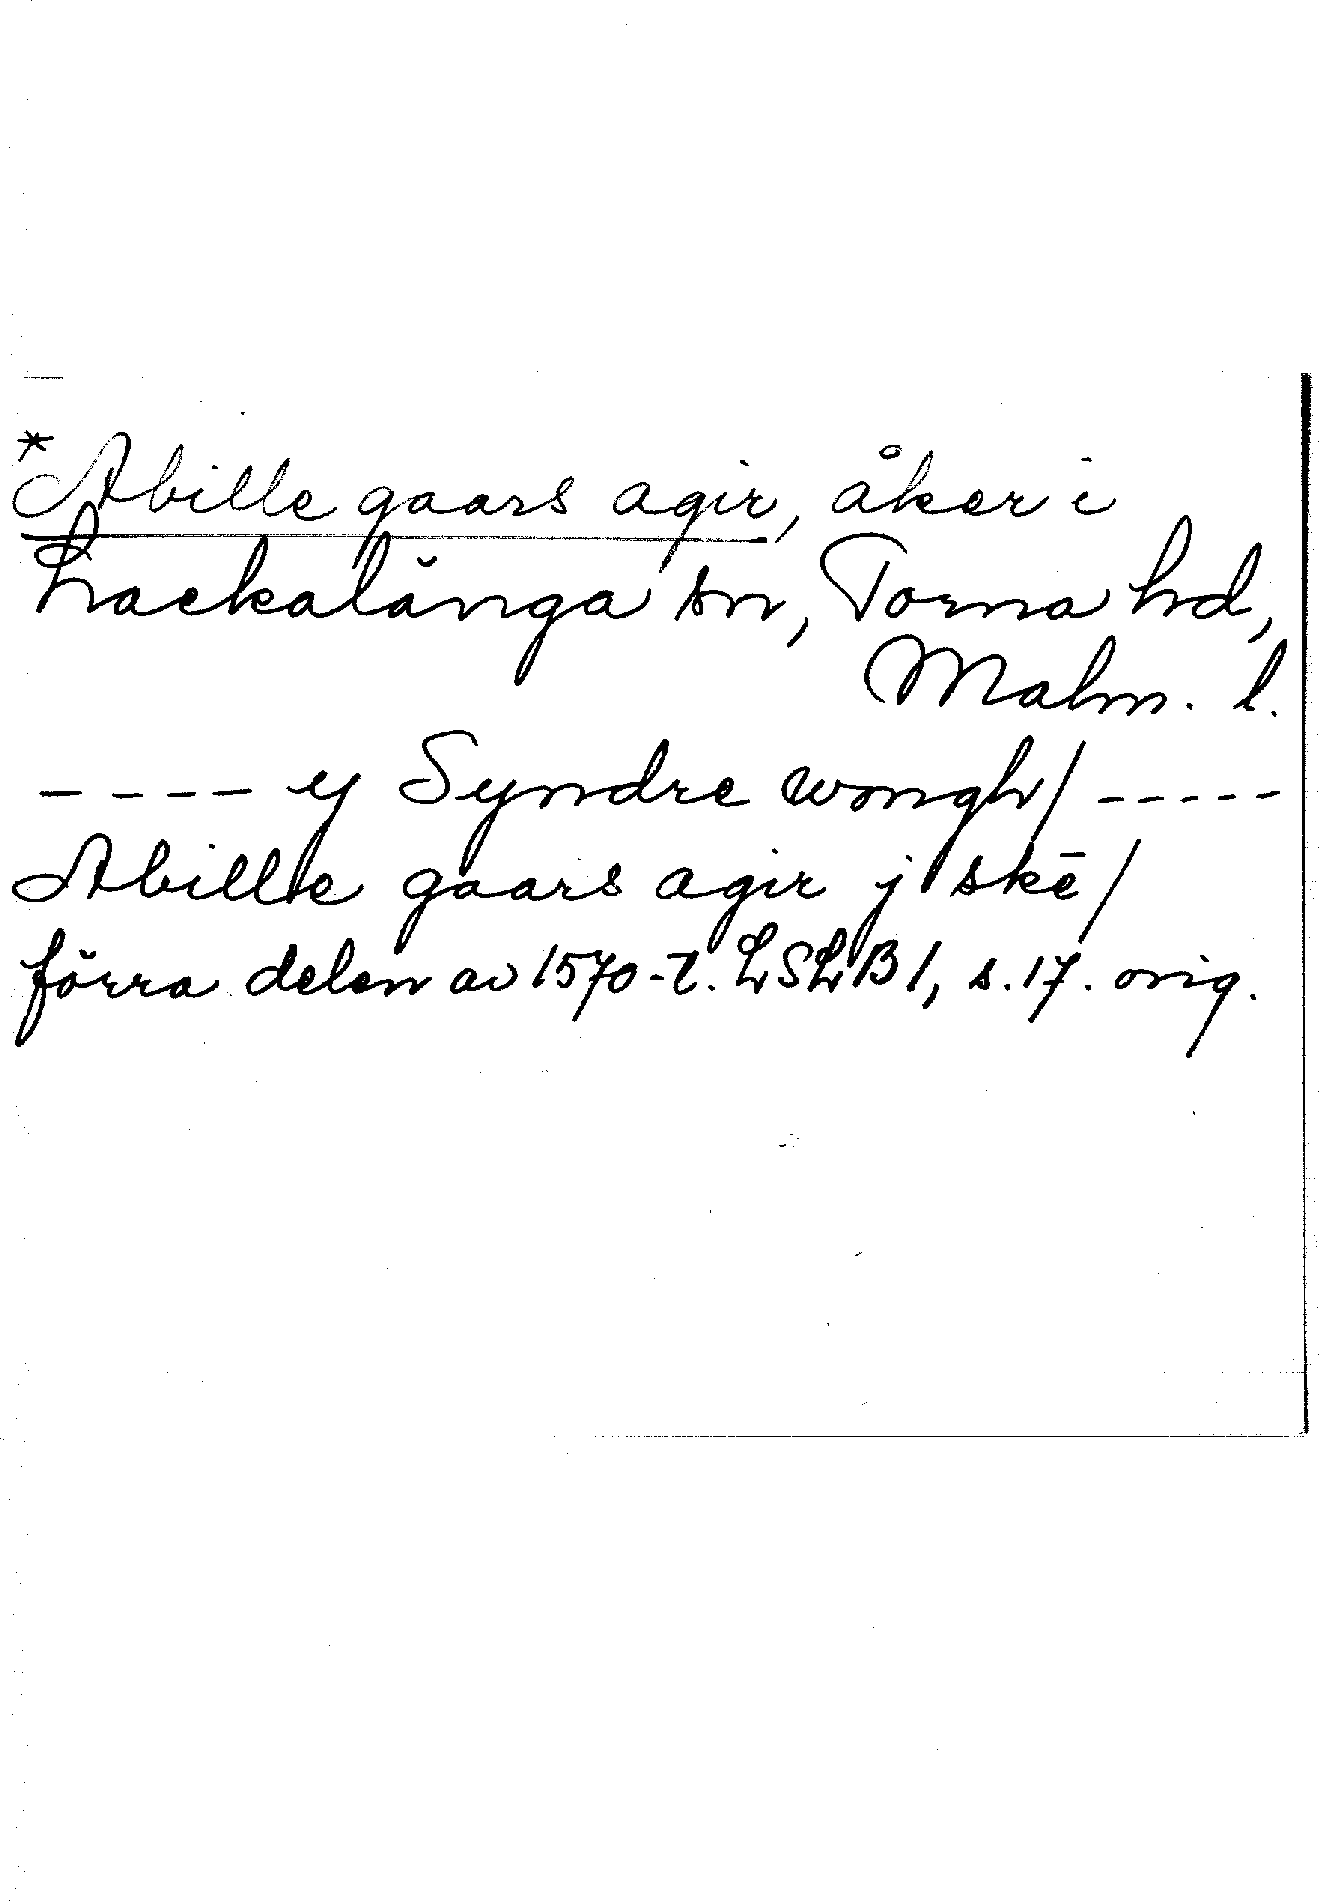 *Abille gaars agir, åker i
Lackalänga sn, Torna hd,
Malm. l.
---- ey Syndre wongh/ -----
Abille gaars agir j skē/
förra delen av 1570-t. LSLB 1, s. 17. orig.